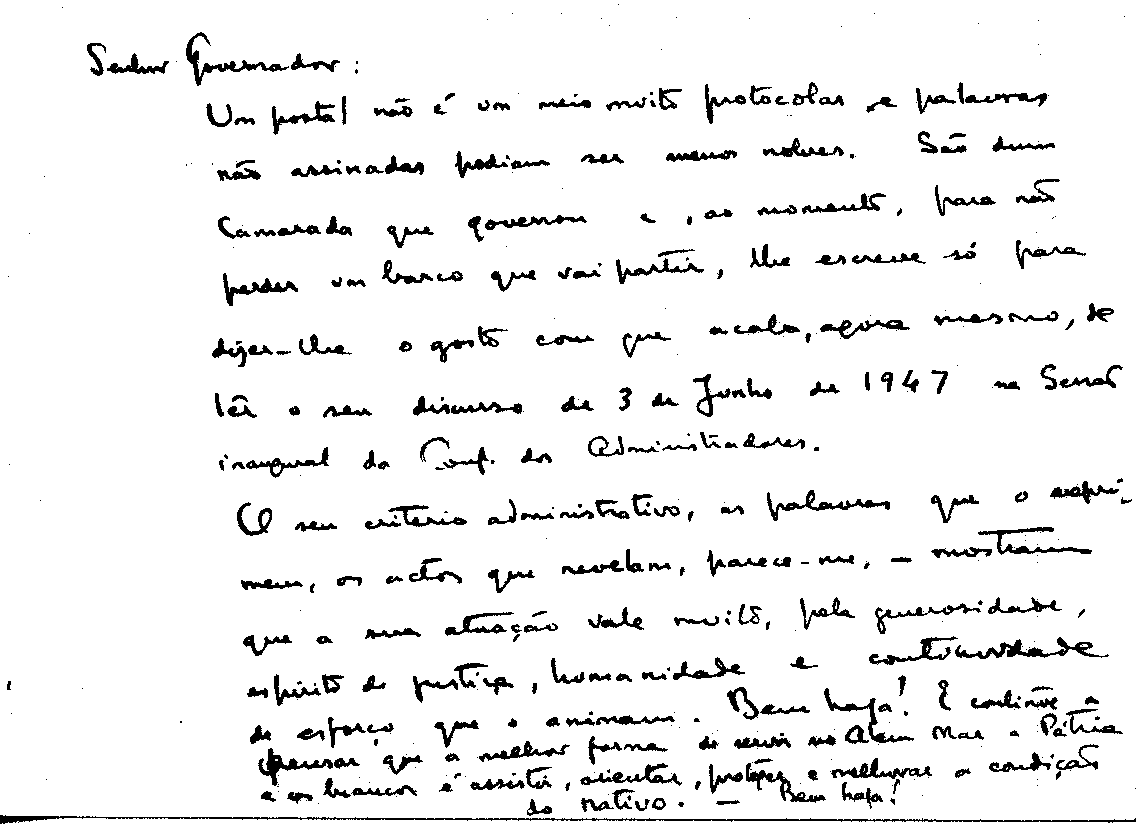 Senhor Governador:
Um postal não é um meio muito protocolar e palavras
não assinadas podiam ser menos nobres. São dum
Camarada que governou e, ao momento, para não
perder um barco que vai partir, lhe escreve só para
dizer-lhe o gosto com que acaba, agora mesmo, de
lêr o seu discurso de 3 de Junho de 1947 na Sessão
inaugural da Conf. dos Administradores.
O seu criterio administrativo, as palavras que o expri-
mem, os actos que revelam, parece-me, – mostram
que a sua atuação vale muito, pela generosidade,
espirito de justiça, humanidade e continuidade
de esforço que o animam. Bem haja! E continue a
pensar que a melhor forma de servir no Alem Mar a Pátria
e os brancos é assistir, orientar, proteger e melhorar a condição
do nativo. – Bem haja!